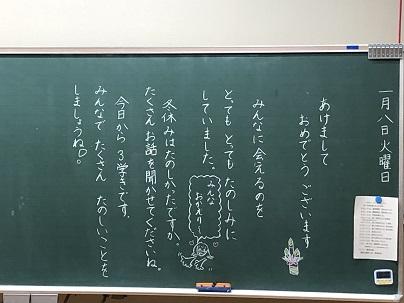 一月八日火曜日
あけまして
おめでとう ございます
みんなに会えるのを
とっても とっても たのしみに
していました。
みんな
おかえり〜
冬休みはたのしかったですか。
たくさん お話を聞かせてくださいね。
今日から 3学きです。
みんなで たくさん たのしいことを
しましょうね。